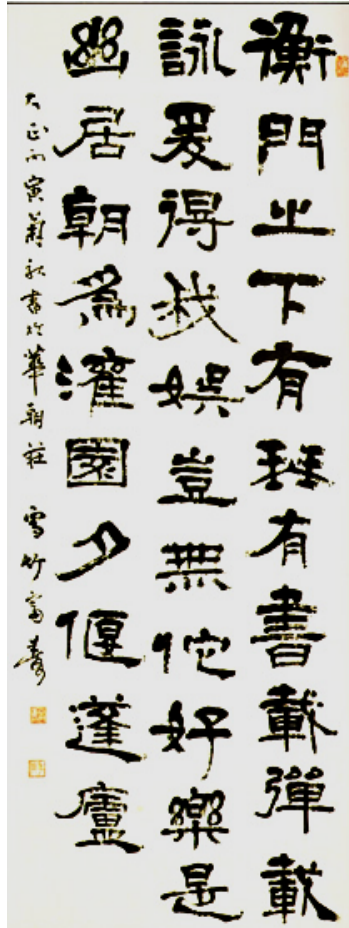 衡門之下有琴有書載彈載
詠爰得我娛豈無佗好樂是
幽居朝為灌園夕偃蓬廬
大正丙寅蘭秋書於華朝莊 雪竹富壽